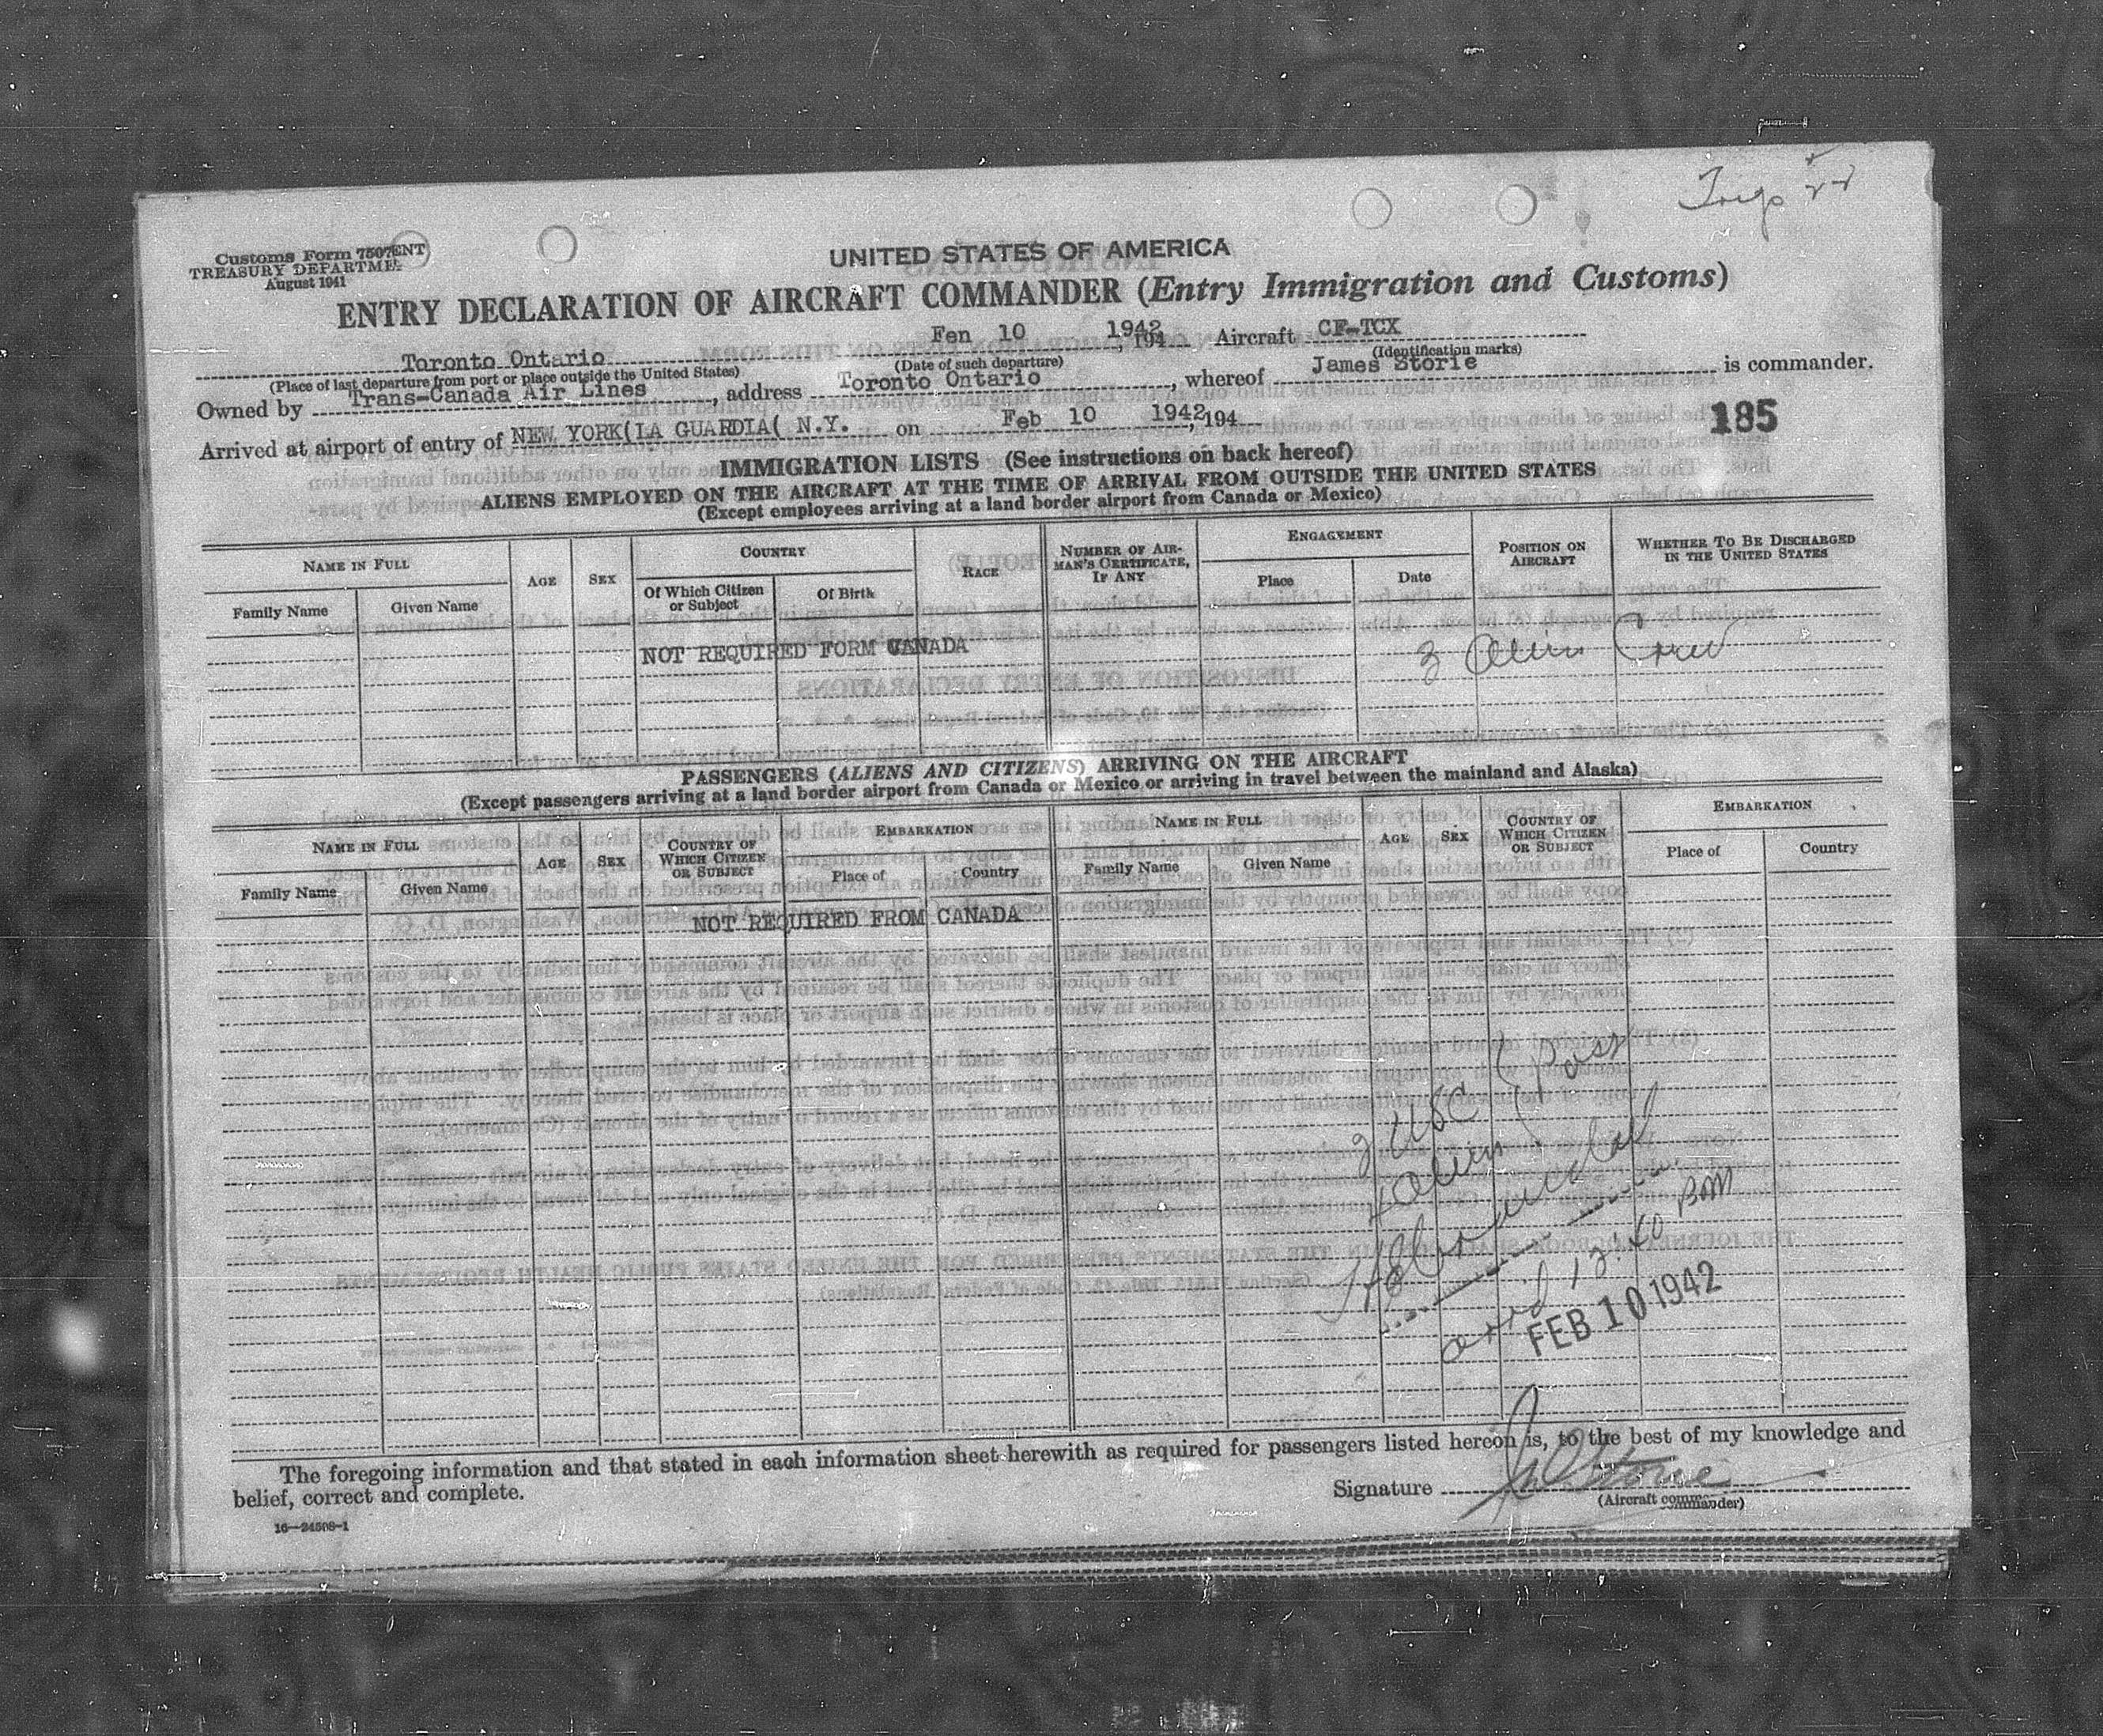 Trip 22
Customs Form 7507
TREASURY DEPARTMENT
August 1941
UNITED STATES OF AMERICA
ENTRY DECLARATION OF AIRCRAFT COMMANDER (Entry Immigration and Customs)
Toronto Ontario Fen 10 1942, 194 Aircraft CF-TCX
(Place of last departure from port or place outside the United States) (Date of such departure) (Identification marks)
Owned by Trans-Canada Air Lines, address Toronto Ontario, whereof James Storie is commander.
Arrived at airport of entry of NEW YORK(LA GUARDIA( N.Y. on Feb 10 1942, 194
185
IMMIGRATION LISTS (See instructions on back hereof)
ALIENS EMPLOYED ON THE AIRCRAFT AT THE TIME OF ARRIVAL FROM OUTSIDE THE UNITED STATES
(Except employees arriving at a land border airport from Canada or Mexico)
NAME IN FULL AGE SEX COUNTRY RACE NUMBER OF AIRMAN'S CERTIFICATE, IF ANY ENGAGEMENT POSITION ON AIRCRAFT WHETHER TO BE DISCHARGED IN THE UNITED STATES
Family Name Given Name Of Which Citizen or Subject Of Birth Place Date
NOT REQUIRED FORM CANADA 3 Alien Crew
PASSENGERS (ALIENS AND CITIZENS) ARRIVING ON THE AIRCRAFT
(Except passengers arriving at a land border airport from Canada or Mexico or arriving in travel between the mainland and Alaska)
NAME IN FULL AGE SEX COUNTRY OF WHICH CITIZEN OR SUBJECT EMBARKATION NAME IN FULL AGE SEX COUNTRY OF WHICH CITIZEN OR SUBJECT EMBARKATION
Family Name Given Name Place of Country Family Name Given Name Place of Country
NOT REQUIRED FROM CANADA
2 USC Pass
Alien
arrd 12:40 PM
FEB 10 1942
The foregoing information and that stated in each information sheet herewith as required for passengers listed hereon is, to the best of my knowledge and
belief, correct and complete.
Signature J Storie
(Aircraft commander)
16—24508-1